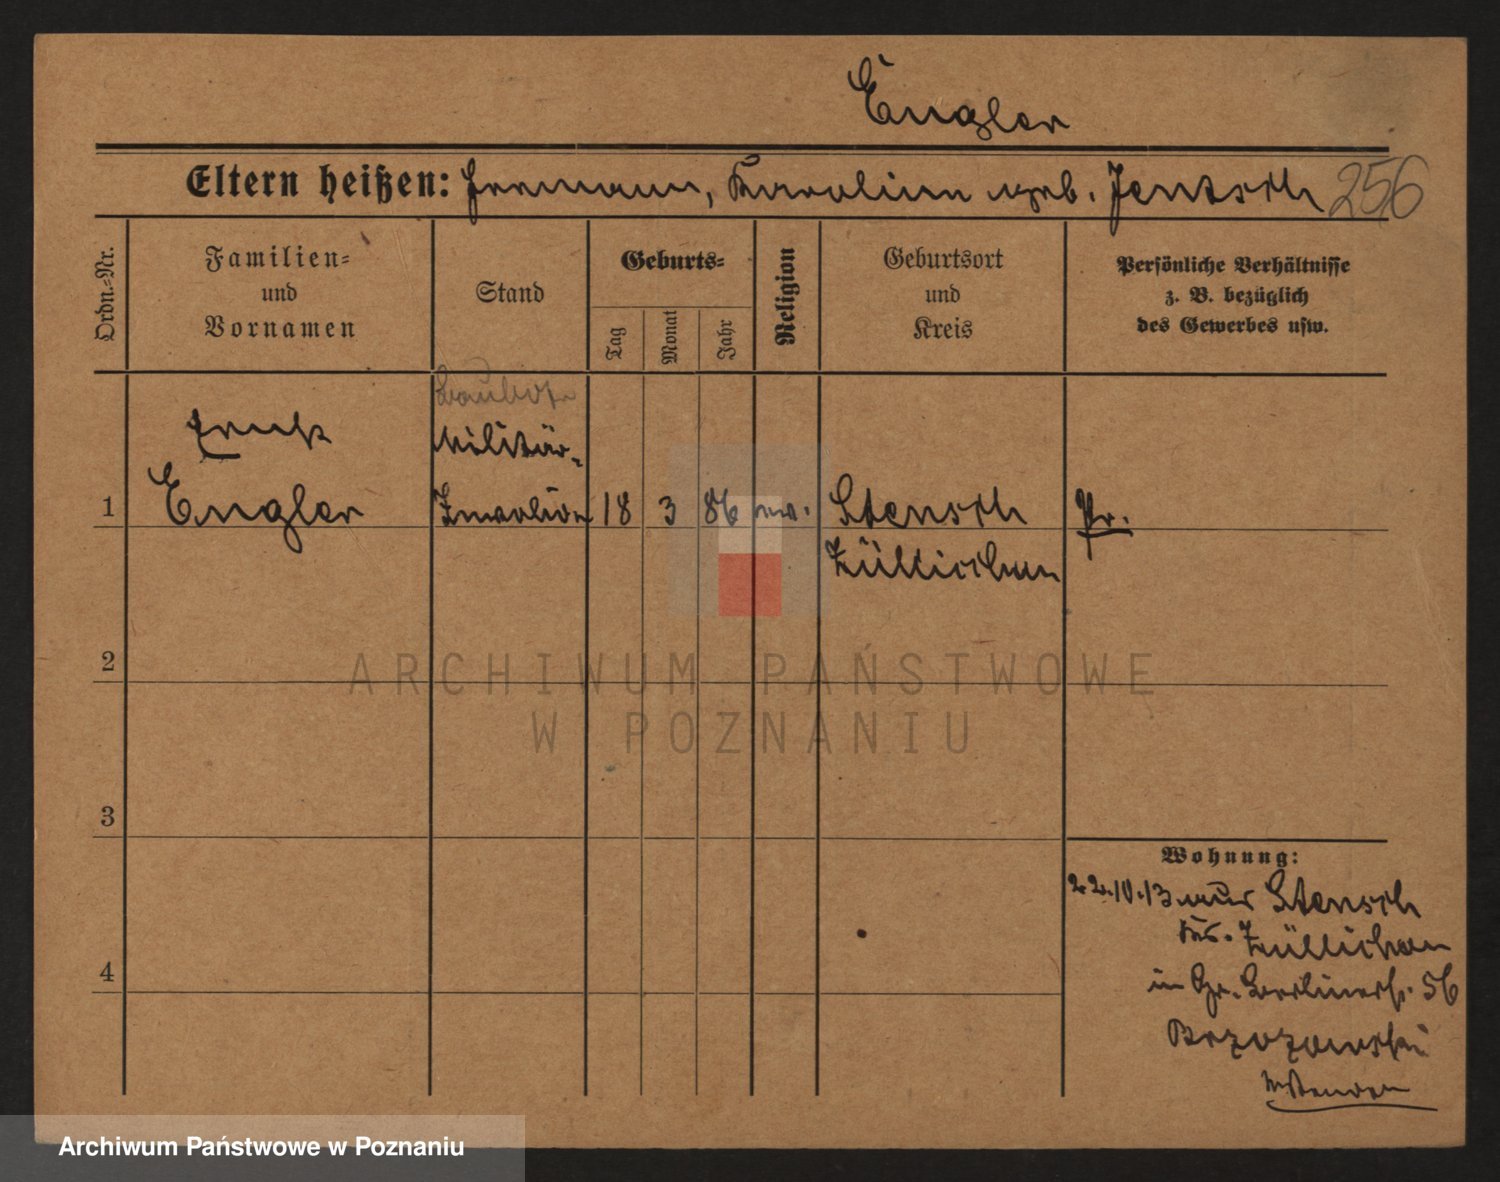 Engler
Eltern heißen: Hermann, Karoline geb. Jentsch 256
Ordn.-Nr.
Familien-
und
Vornamen
Stand
Geburts-
Tag
Monat
Jahr
Religion
Geburtsort
und
Kreis
Persönliche Verhältnisse
z. B. bezüglich
des Gewerbes usw.
Ernst
Militär-
1 Engler Invalide 18 3 86 ev. Stensch Pr.
Züllichau
2
ARCHIWUM PAŃSTWOWE
W POZNANIU
3
Wohnung:
22.10.13 aus Stensch
Krs. Züllichau
in Gr. Berlinerst. 56
4
Brzozowski
Archiwum Państwowe w Poznaniu